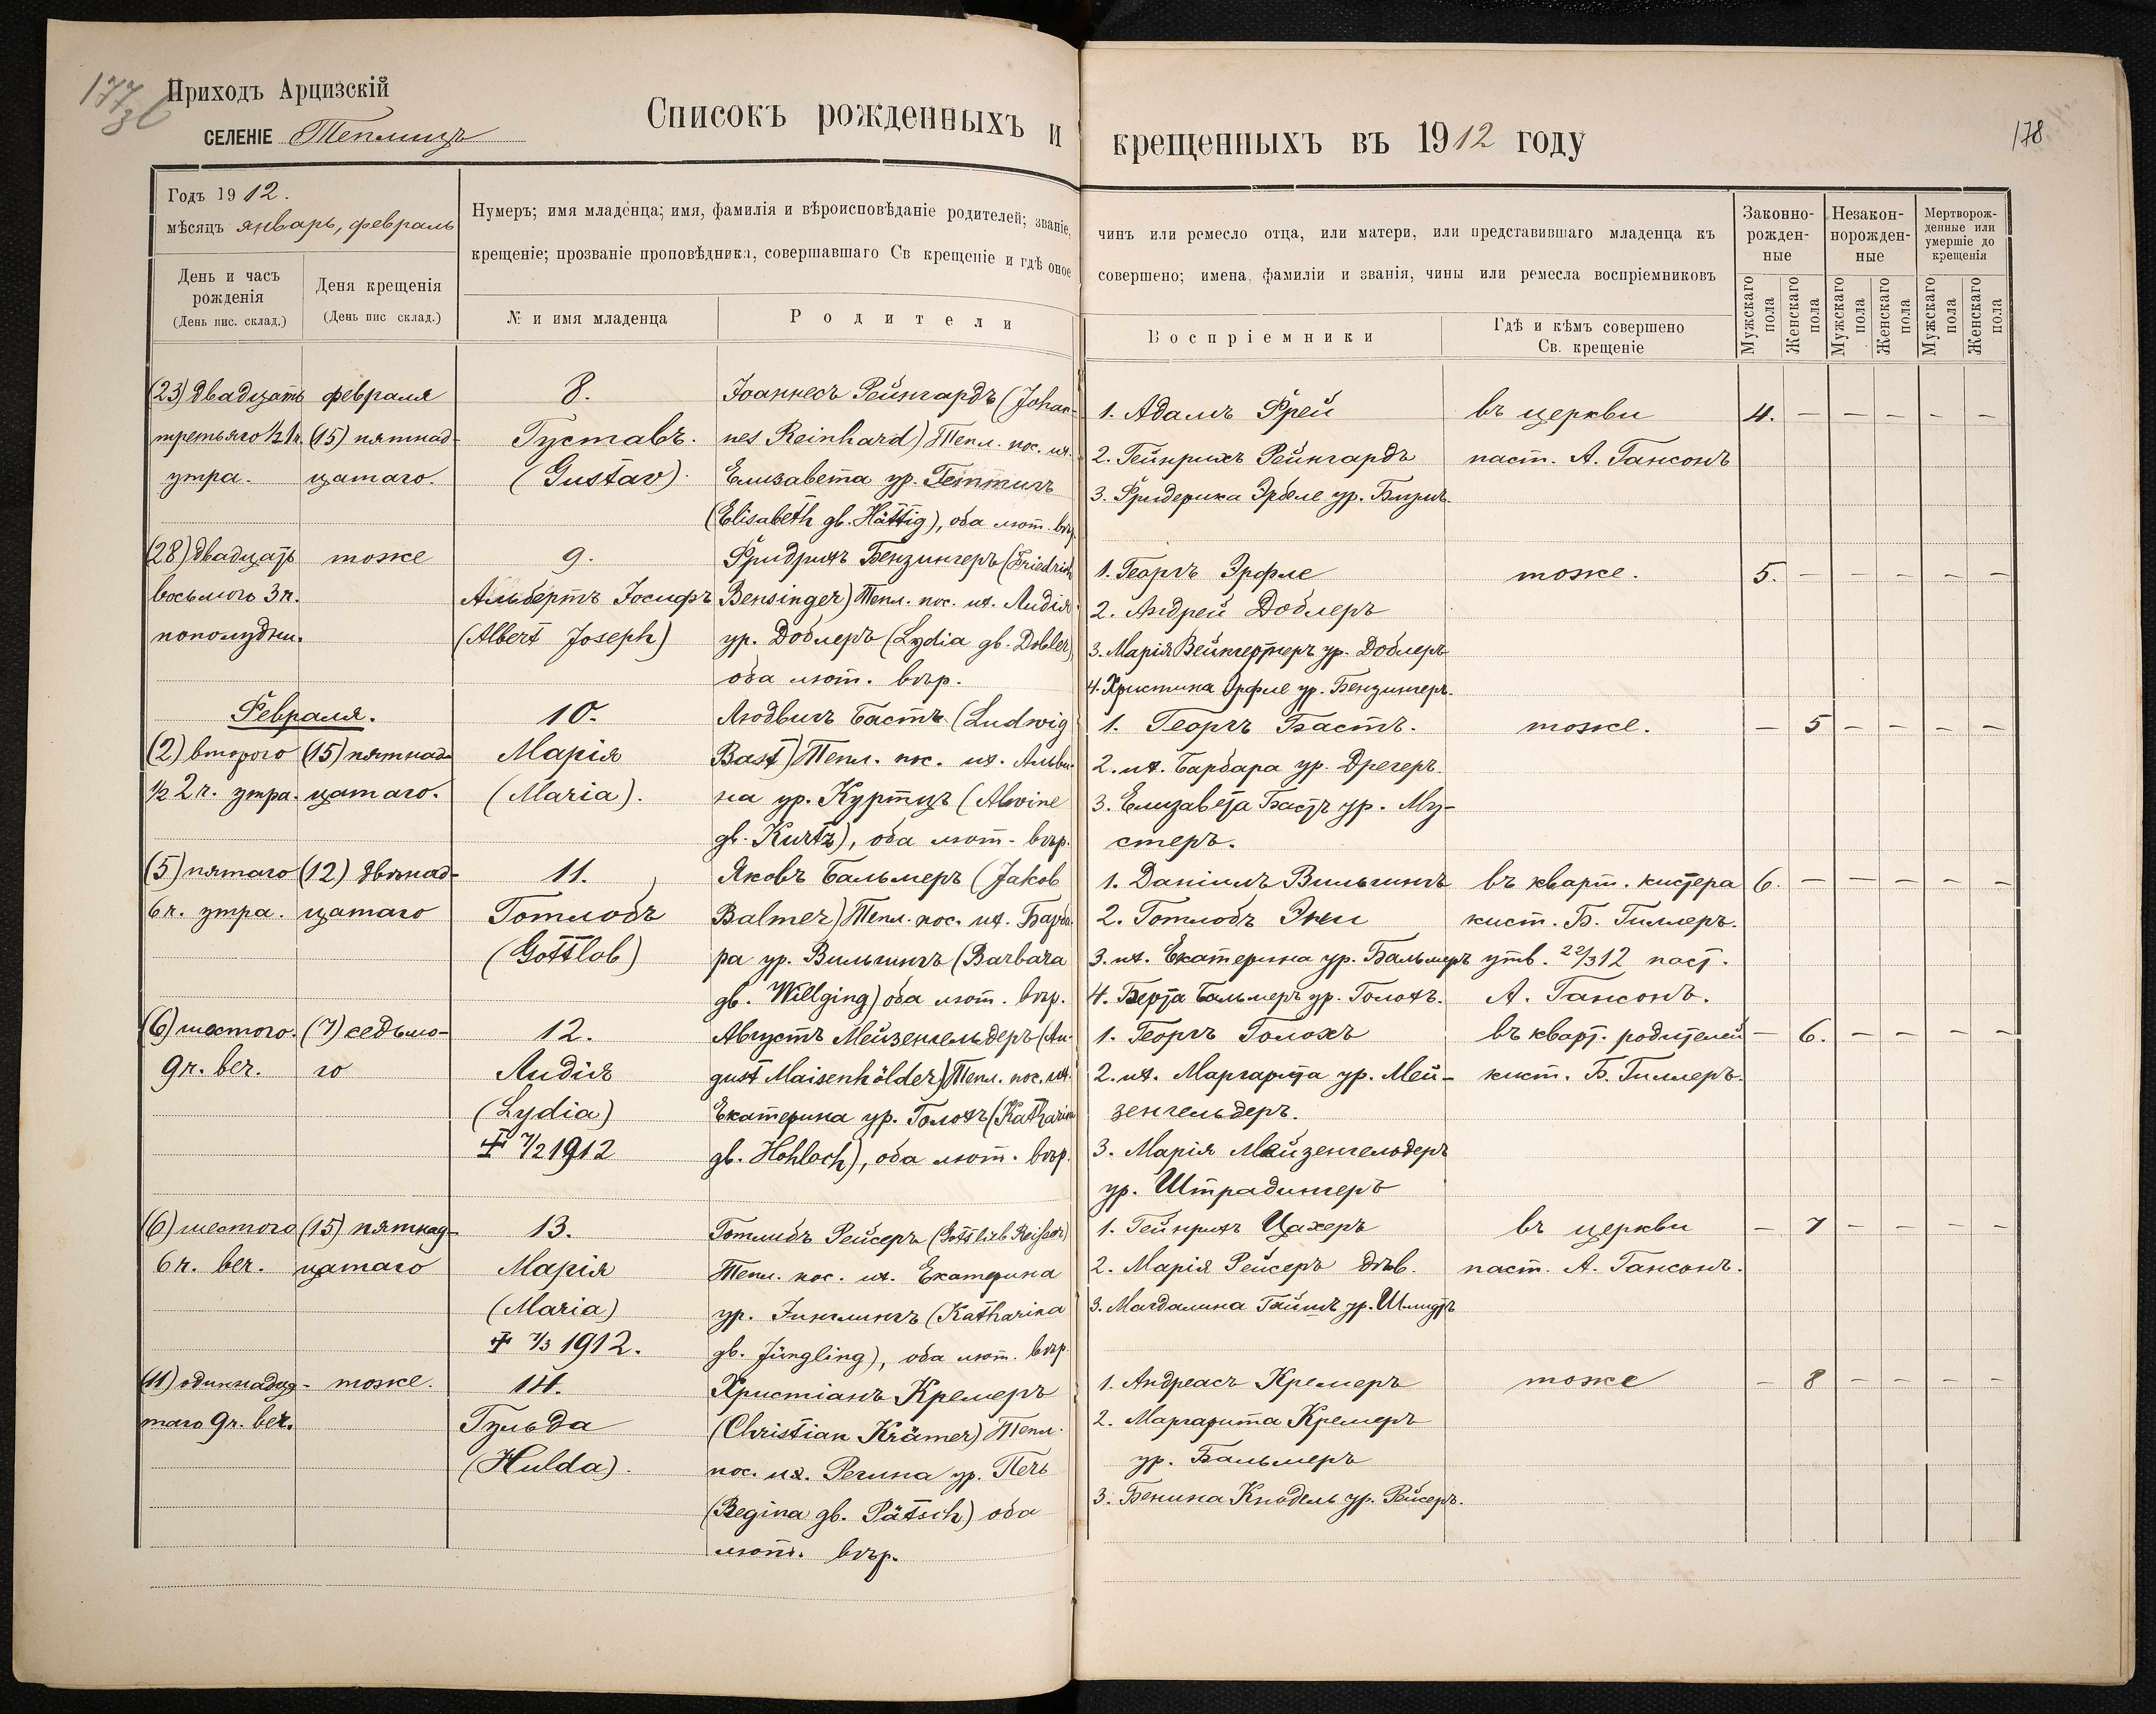 177
36
178
Приходъ Арцизскій
СЕЛЕНІЕ Теплицъ
Списокъ рожденныхъ и крещенныхъ въ 1912 году
Годъ 1912.
мѣсяцъ январь, февраль
Нумеръ; имя младенца; имя, фамилія и вѣроисповѣданіе родителей; званіе, чинъ или ремесло отца, или матери, или представившаго младенца къ
крещеніе; прозваніе проповѣдника, совершавшаго Св крещеніе и гдѣ оное совершено; имена, фамиліи и званія, чины или ремесла воспріемниковъ
Законно-
рожден-
ные
Незакон-
норожден-
ные
Мертворож-
денные или
умершіе до
крещенія
День и часъ
рожденія
(День пис. склад.)
Деня крещенія
(День пис склад.)
№ и имя младенца
Родители
Воспріемники
Гдѣ и кѣмъ совершено
Св. крещеніе
Мужскаго пола
Женскаго пола
Мужскаго пола
Женскаго пола
Мужскаго пола
Женскаго пола
(23) двадцать
третьяго ½ 1 ч.
утра.
февраля
(15) пятнад-
цатаго.
8.
Густавъ.
(Gustav).
Іоаннесъ Рейнгардъ (Johan-
nes Reinhard) Тепл. пос. их.
Елизавета ур. Геттигъ
(Elisabeth gb. Hättig), оба лют. вѣр.
1. Адамъ Фрей
2. Гейнрихъ Рейнгардъ
3. Фридерика Эрбеле ур.
въ церкви
паст. А. Гансонъ
4. — — — — —
(28) двадцать
восьмого 3 ч.
пополудни.
тоже
9.
Альбертъ Іосифъ
(Albert Joseph)
Фридрихъ Бензингеръ (Friedrich
Bensinger) Тепл. пос. их. Лидія
ур. Доблеръ (Lydia gb. Dobler),
оба лют. вѣр.
1. Георгъ Эрфле
2. Андрей Доблеръ
3. Марія Вейнгертнеръ ур. Доблеръ
4. Христина Эрфле ур. Бензингеръ.
тоже.
5. — — — — —
Февраля.
(2) второго
½ 2 ч. утра.
(15) пятнад-
цатаго.
10.
Марія
(Maria).
Людвигъ Бастъ (Ludwig
Bast) Тепл. пос. их. Альви-
на ур. Куртцъ (Alwine
gb. Kurtz), оба лют. вѣр.
1. Георгъ Бастъ.
2. их. Барбара ур. Дрегеръ.
3. Елизавета Бастъ ур. Му-
стеръ.
тоже.
— 5 — — — —
(5) пятаго
6 ч. утра.
(12) двѣнад-
цатаго
11.
Готлобъ
(Gottlob)
Яковъ Бальмеръ (Jakob
Balmer) Тепл. пос. их. Барба-
ра ур. Вильгингъ (Barbara
gb. Willging) оба лют. вѣр.
1. Даніилъ Вильгингъ
2. Готлобъ
3. их. Екатерина ур. Бальмеръ
4. Берта Бальмеръ ур. Голохъ.
въ кварт. кистера
кист. Б. Гиллеръ.
утв. 22/3 12 паст.
А. Гансонъ.
6. — — — — —
(6) шестого.
9 ч. веч.
(7) седьмо-
го
12.
Лидія
(Lydia)
✝ 7/2 1912
Августъ Мейзенгельдеръ (Au-
gust Maisenhölder) Тепл. пос. их.
Екатерина ур. Голохъ (Katharina
gb. Hohloch), оба лют. вѣр.
1. Георгъ Голохъ
2. их. Маргарита ур. Мей-
зенгельдеръ.
3. Марія Мейзенгельдеръ
ур. Штрадингеръ
въ кварт. родителей
кист. Б. Гиллеръ.
— 6. — — — —
(6) шестого
6 ч. веч.
(15) пятнад-
цатаго
13.
Марія
(Maria)
✝ 7/3 1912.
Готлибъ Рейсеръ (Gottlieb Reisser)
Тепл. пос. их. Екатерина
ур. Энглингъ (Katharina
gb. Jüngling), оба лют. вѣр.
1. Гейнрихъ Цахеръ
2. Марія Рейсеръ дѣв.
3. Магдалина ур. Шмидтъ
въ церкви
паст. А. Гансонъ.
— 7 — — — —
(11) одиннадца-
таго 9 ч. веч.
тоже.
14.
Гульда
(Hulda).
Христіанъ Кремеръ
(Christian Krämer) Тепл.
пос. их. Регина ур. Печь
(Regina gb. Pätsch) оба
лют. вѣр.
1. Андреасъ Кремеръ
2. Маргарита Кремеръ
ур. Бальмеръ
3. Бенина Кнодель ур. Рейсеръ.
тоже
— 8 — — — —